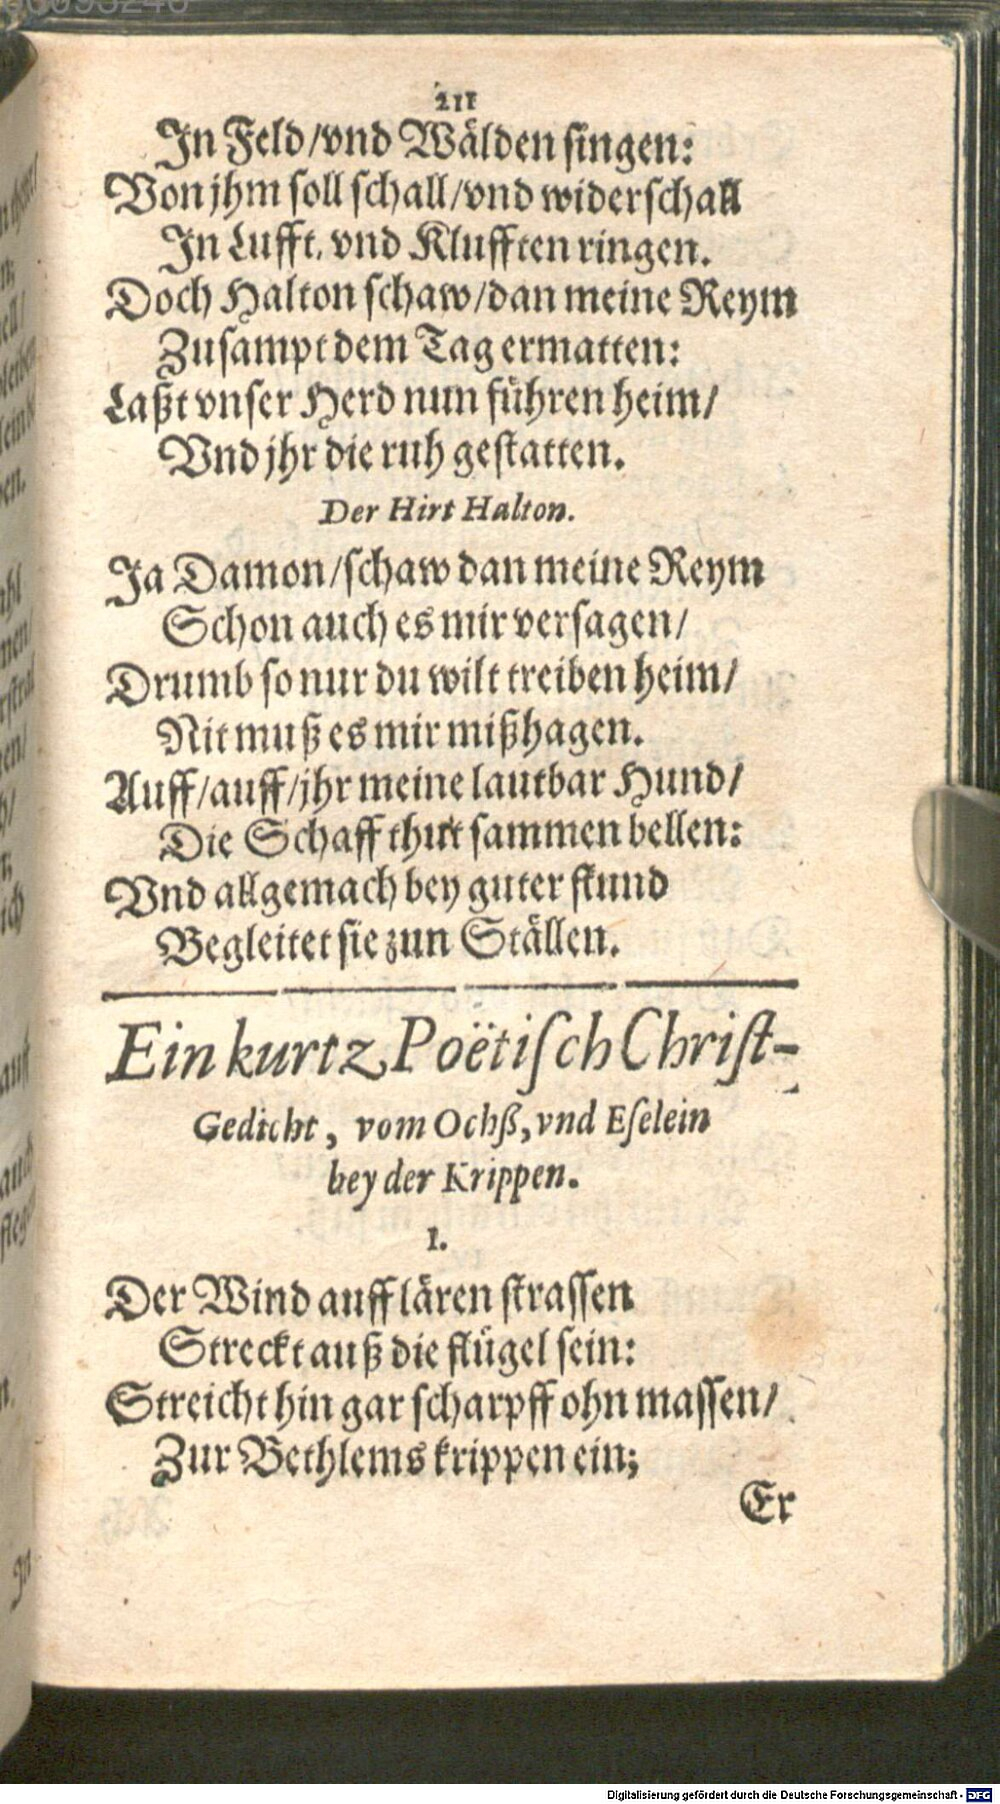 211
In Feld/vnd Wälden singen:
Von jhm soll schall/vnd widerschall
In Lufft, vnd Klufften ringen.
Doch Halton schaw/dan meine Reym
Zusampt dem Tag ermatten:
Laßt vnser Herd nun führen heim/
Vnd jhr die ruh gestatten.
Der Hirt Halton.
Ja Damon/schaw dan meine Reym
Schon auch es mir versagen/
Drumb so nur du wilt treiben heim/
Nit muß es mir mißhagen.
Auff/auff/jhr meine lautbar Hund/
Die Schaff thut sammen bellen:
Vnd allgemach bey guter stund
Begleitet sie zun Ställen.
Ein kurtz Poëtisch Christ-
Gedicht, vom Ochß, vnd Eselein
bey der Krippen.
1.
Der Wind auff lären strassen
Streckt auß die flügel sein:
Streicht hin gar scharpff ohn massen/
Zur Bethlems krippen ein;
Er
Digitalisierung gefördert durch die Deutsche Forschungsgemeinschaft - DFG